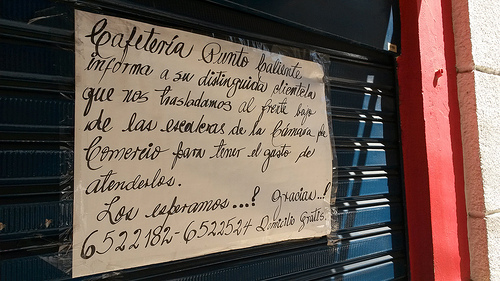 Cafetería Punto Caliente
informa a su distinguida clientela
que nos trasladamos al frente bajo
de las escaleras de la Cámara de
Comercio para tener el gusto de
atenderlos.
Los esperamos...! Gracias..!
6522182-6522524 Domicilio Gratis.